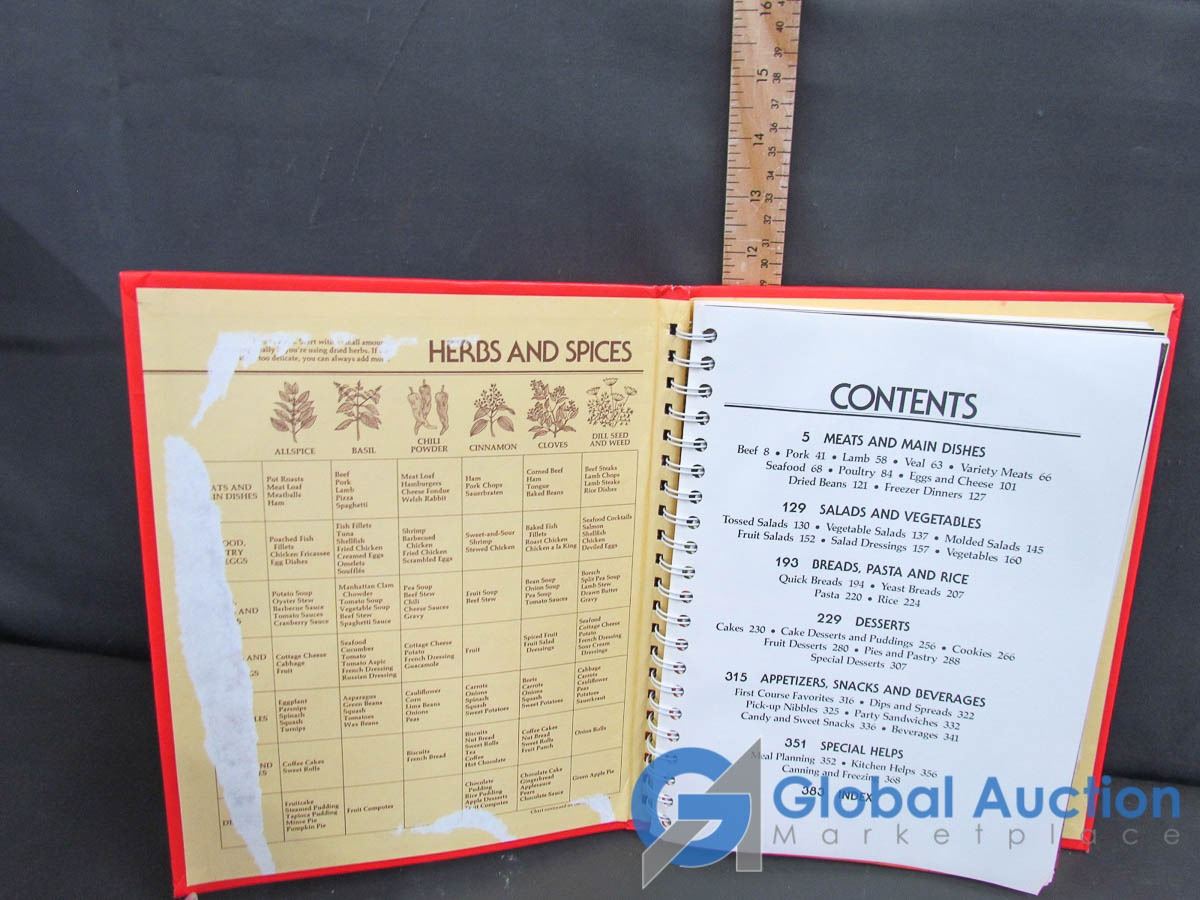 HERBS AND SPICES
you're using dried herbs. If
too delicate, you can always add more
ALLSPICE
BASIL
CHILI
POWDER
CINNAMON
CLOVES
DILL SEED
AND WEED
Pot Roasts
Meat Loaf
Meatballs
Ham
Beef
Pork
Lamb
Pizza
Spaghetti
Meat Loaf
Hamburgers
Cheese Fondue
Welsh Rabbit
Ham
Pork Chops
Sauerbraten
Corned Beef
Ham
Tongue
Baked Beans
Beef Steaks
Lamb Chops
Lamb Steaks
Rice Dishes
Poached Fish
Fillets
Chicken Fricassee
Egg Dishes
Fish Fillets
Tuna
Shellfish
Fried Chicken
Creamed Eggs
Omelets
Soufflés
Shrimp
Barbecued
Chicken
Fried Chicken
Scrambled Eggs
Sweet-and-Sour
Shrimp
Stewed Chicken
Baked Fish
Fillets
Roast Chicken
Chicken a la King
Seafood Cocktails
Salmon
Shellfish
Chicken
Deviled Eggs
Potato Soup
Oyster Stew
Barbecue Sauce
Tomato Sauces
Cranberry Sauce
Manhattan Clam
Chowder
Tomato Soup
Vegetable Soup
Beef Stew
Spaghetti Sauce
Pea Soup
Beef Stew
Chili
Cheese Sauces
Gravy
Fruit Soup
Beef Stew
Bean Soup
Onion Soup
Pea Soup
Tomato Sauces
Borsch
Split Pea Soup
Lamb Stew
Drawn Butter
Gravy
Cottage Cheese
Cabbage
Fruit
Seafood
Cucumber
Tomato
Tomato Aspic
French Dressing
Russian Dressing
Cottage Cheese
Potato
French Dressing
Guacamole
Fruit
Spiced Fruit
Fruit Salad
Dressings
Seafood
Cottage Cheese
Potato
French Dressing
Sour Cream
Dressings
Eggplant
Parsnips
Spinach
Squash
Turnips
Asparagus
Green Beans
Squash
Tomatoes
Wax Beans
Cauliflower
Corn
Lima Beans
Onions
Peas
Carrots
Onions
Spinach
Squash
Sweet Potatoes
Beets
Carrots
Onions
Squash
Sweet Potatoes
Cabbage
Carrots
Cauliflower
Peas
Potatoes
Sauerkraut
Coffee Cakes
Sweet Rolls
Biscuits
French Bread
Biscuits
Nut Bread
Sweet Rolls
Tea
Coffee
Hot Chocolate
Coffee Cakes
Nut Bread
Sweet Rolls
Fruit Punch
Onion Rolls
Fruitcake
Steamed Pudding
Tapioca Pudding
Mince Pie
Pumpkin Pie
Fruit Compotes
Chocolate
Pudding
Rice Pudding
Apple Desserts
Chocolate Cake
Gingerbread
Applesauce
Pears
Chocolate Sauce
Green Apple Pie
CONTENTS
5 MEATS AND MAIN DISHES
Beef 8 • Pork 41 • Lamb 58 • Veal 63 • Variety Meats 66
Seafood 68 • Poultry 84 • Eggs and Cheese 101
Dried Beans 121 • Freezer Dinners 127
129 SALADS AND VEGETABLES
Tossed Salads 130 • Vegetable Salads 137 • Molded Salads 145
Fruit Salads 152 • Salad Dressings 157 • Vegetables 160
193 BREADS, PASTA AND RICE
Quick Breads 194 • Yeast Breads 207
Pasta 220 • Rice 224
229 DESSERTS
Cakes 230 • Cake Desserts and Puddings 256 • Cookies 266
Fruit Desserts 280 • Pies and Pastry 288
Special Desserts 307
315 APPETIZERS, SNACKS AND BEVERAGES
First Course Favorites 316 • Dips and Spreads 322
Pick-up Nibbles 325 • Party Sandwiches 332
Candy and Sweet Snacks 336 • Beverages 341
351 SPECIAL HELPS
Meal Planning 352 • Kitchen Helps 356
Canning and Freezing 368
383 INDEX
Global Auction
Marketplace
16
15
14
13
12